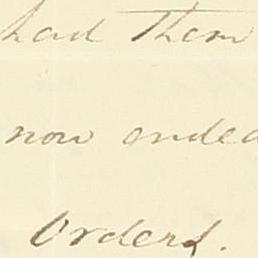 had them
now ended
Orders.